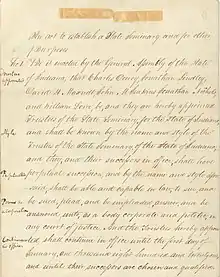 An act to establish a State Seminary and for other
purposes
Sec 1 Be it enacted by the General Assembly of the State
of Indiana, that Charles Dewey, Jonathan Lindley,
David H. Maxwell, John M. Jenkins, Jonathan Nichols
and William Lowe, be, and they are hereby appointed
Trustees of the State Seminary, for the State of Indiana
Style and shall be known by the name and style of the
Trustees of the State Seminary of the State of Indiana,
and they, and their successors in office, shall have
perpetual succession, and by the name and style afore-
said, shall be able and capable in law, to sue and
be sued, plead, and be impleaded, answer and be
answered unto, as a body corporate and politic, in
any court of justice. And the Trustees hereby appoint-
ed, shall continue in office until the first day of
January, one thousand eight hundred and
and until their successors are chosen and qualified